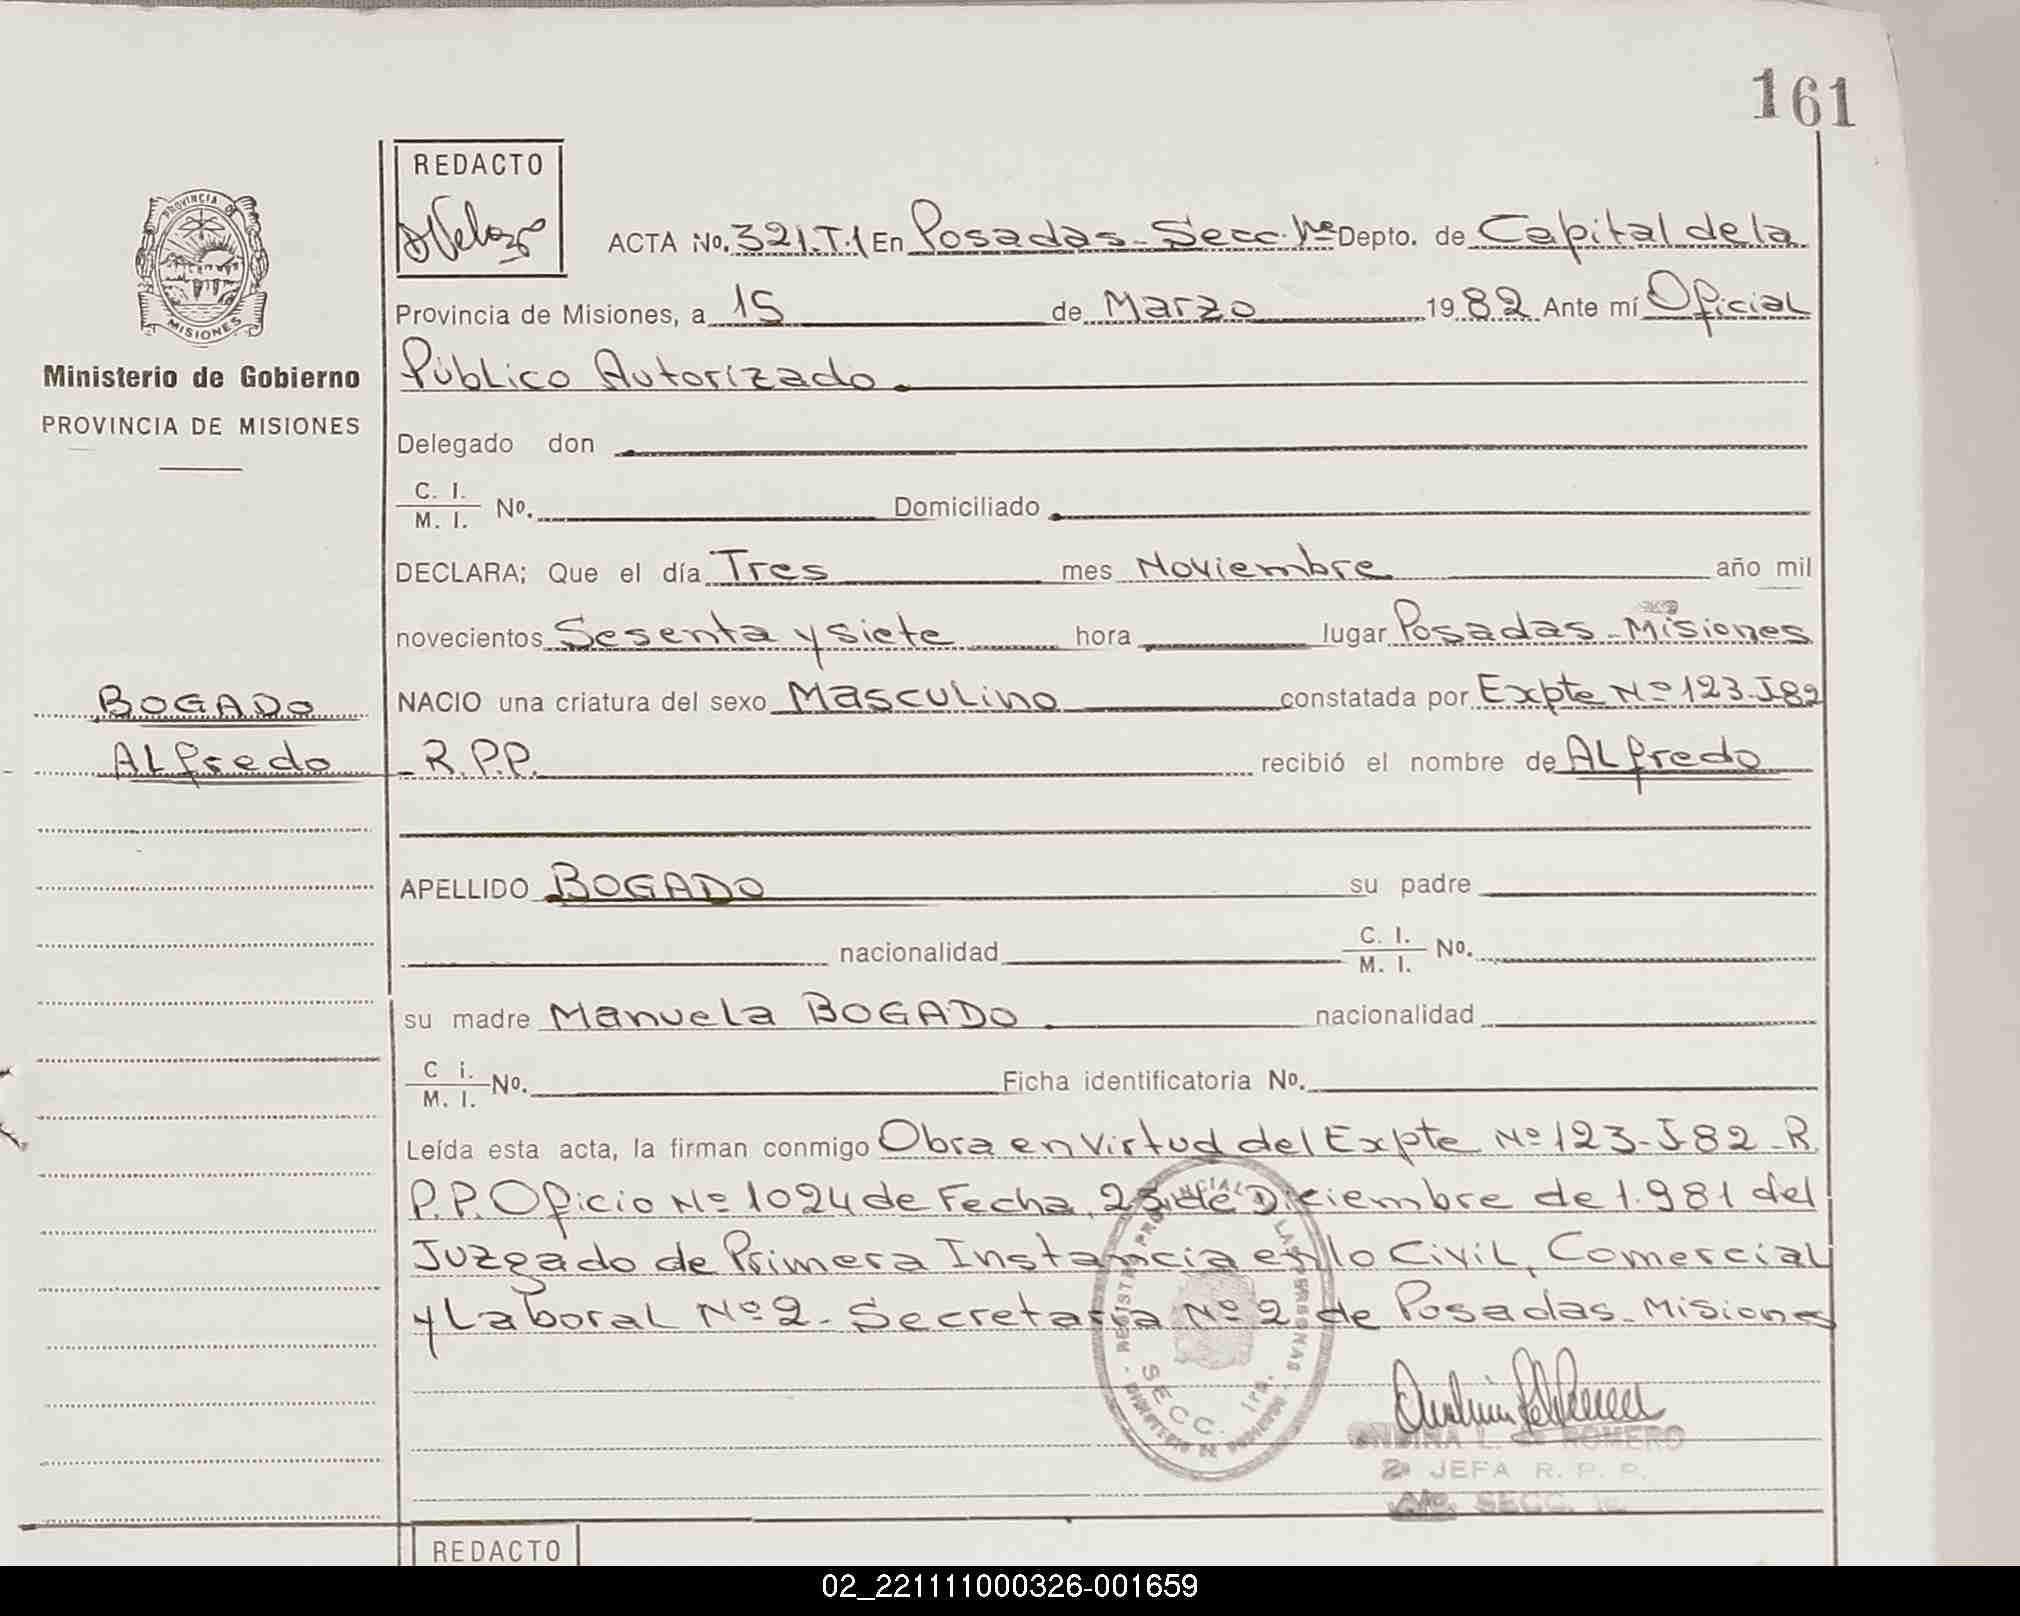 161
REDACTO
PROVINCIA DE
MISIONES
Ministerio de Gobierno
PROVINCIA DE MISIONES
ACTA No. 321.T.1 En Posadas-Secc.1ª Depto. de Capital de la
Provincia de Misiones, a 15 de Marzo 1982 Ante mí Oficial
Público Autorizado.
Delegado don
C. I.
M. I. No. Domiciliado
DECLARA; Que el día Tres mes Noviembre año mil
novecientos Sesenta y siete hora lugar Posadas-Misiones
BOGADO
ALfredo
NACIO una criatura del sexo Masculino constatada por Expte Nº 123-J82
-R.P.P. recibió el nombre de ALfredo
APELLIDO BOGADO su padre
nacionalidad C. I.
M. I. No.
su madre Manuela BOGADO nacionalidad
C i.
M. I. No. Ficha identificatoria No.
Leída esta acta, la firman conmigo Obra en virtud del Expte Nº 123-J-82-R.
P.P. Oficio Nº 1024 de Fecha, 23 de Diciembre de 1.981 del
Juzgado de Primera Instancia en lo Civil, Comercial
y Laboral Nº 2-Secretaría Nº 2 de Posadas-Misiones
SECC. 1ra.
ONDINA L. de ROMERO
2ª JEFA R. P. P.
REDACTO
02_221111000326-001659